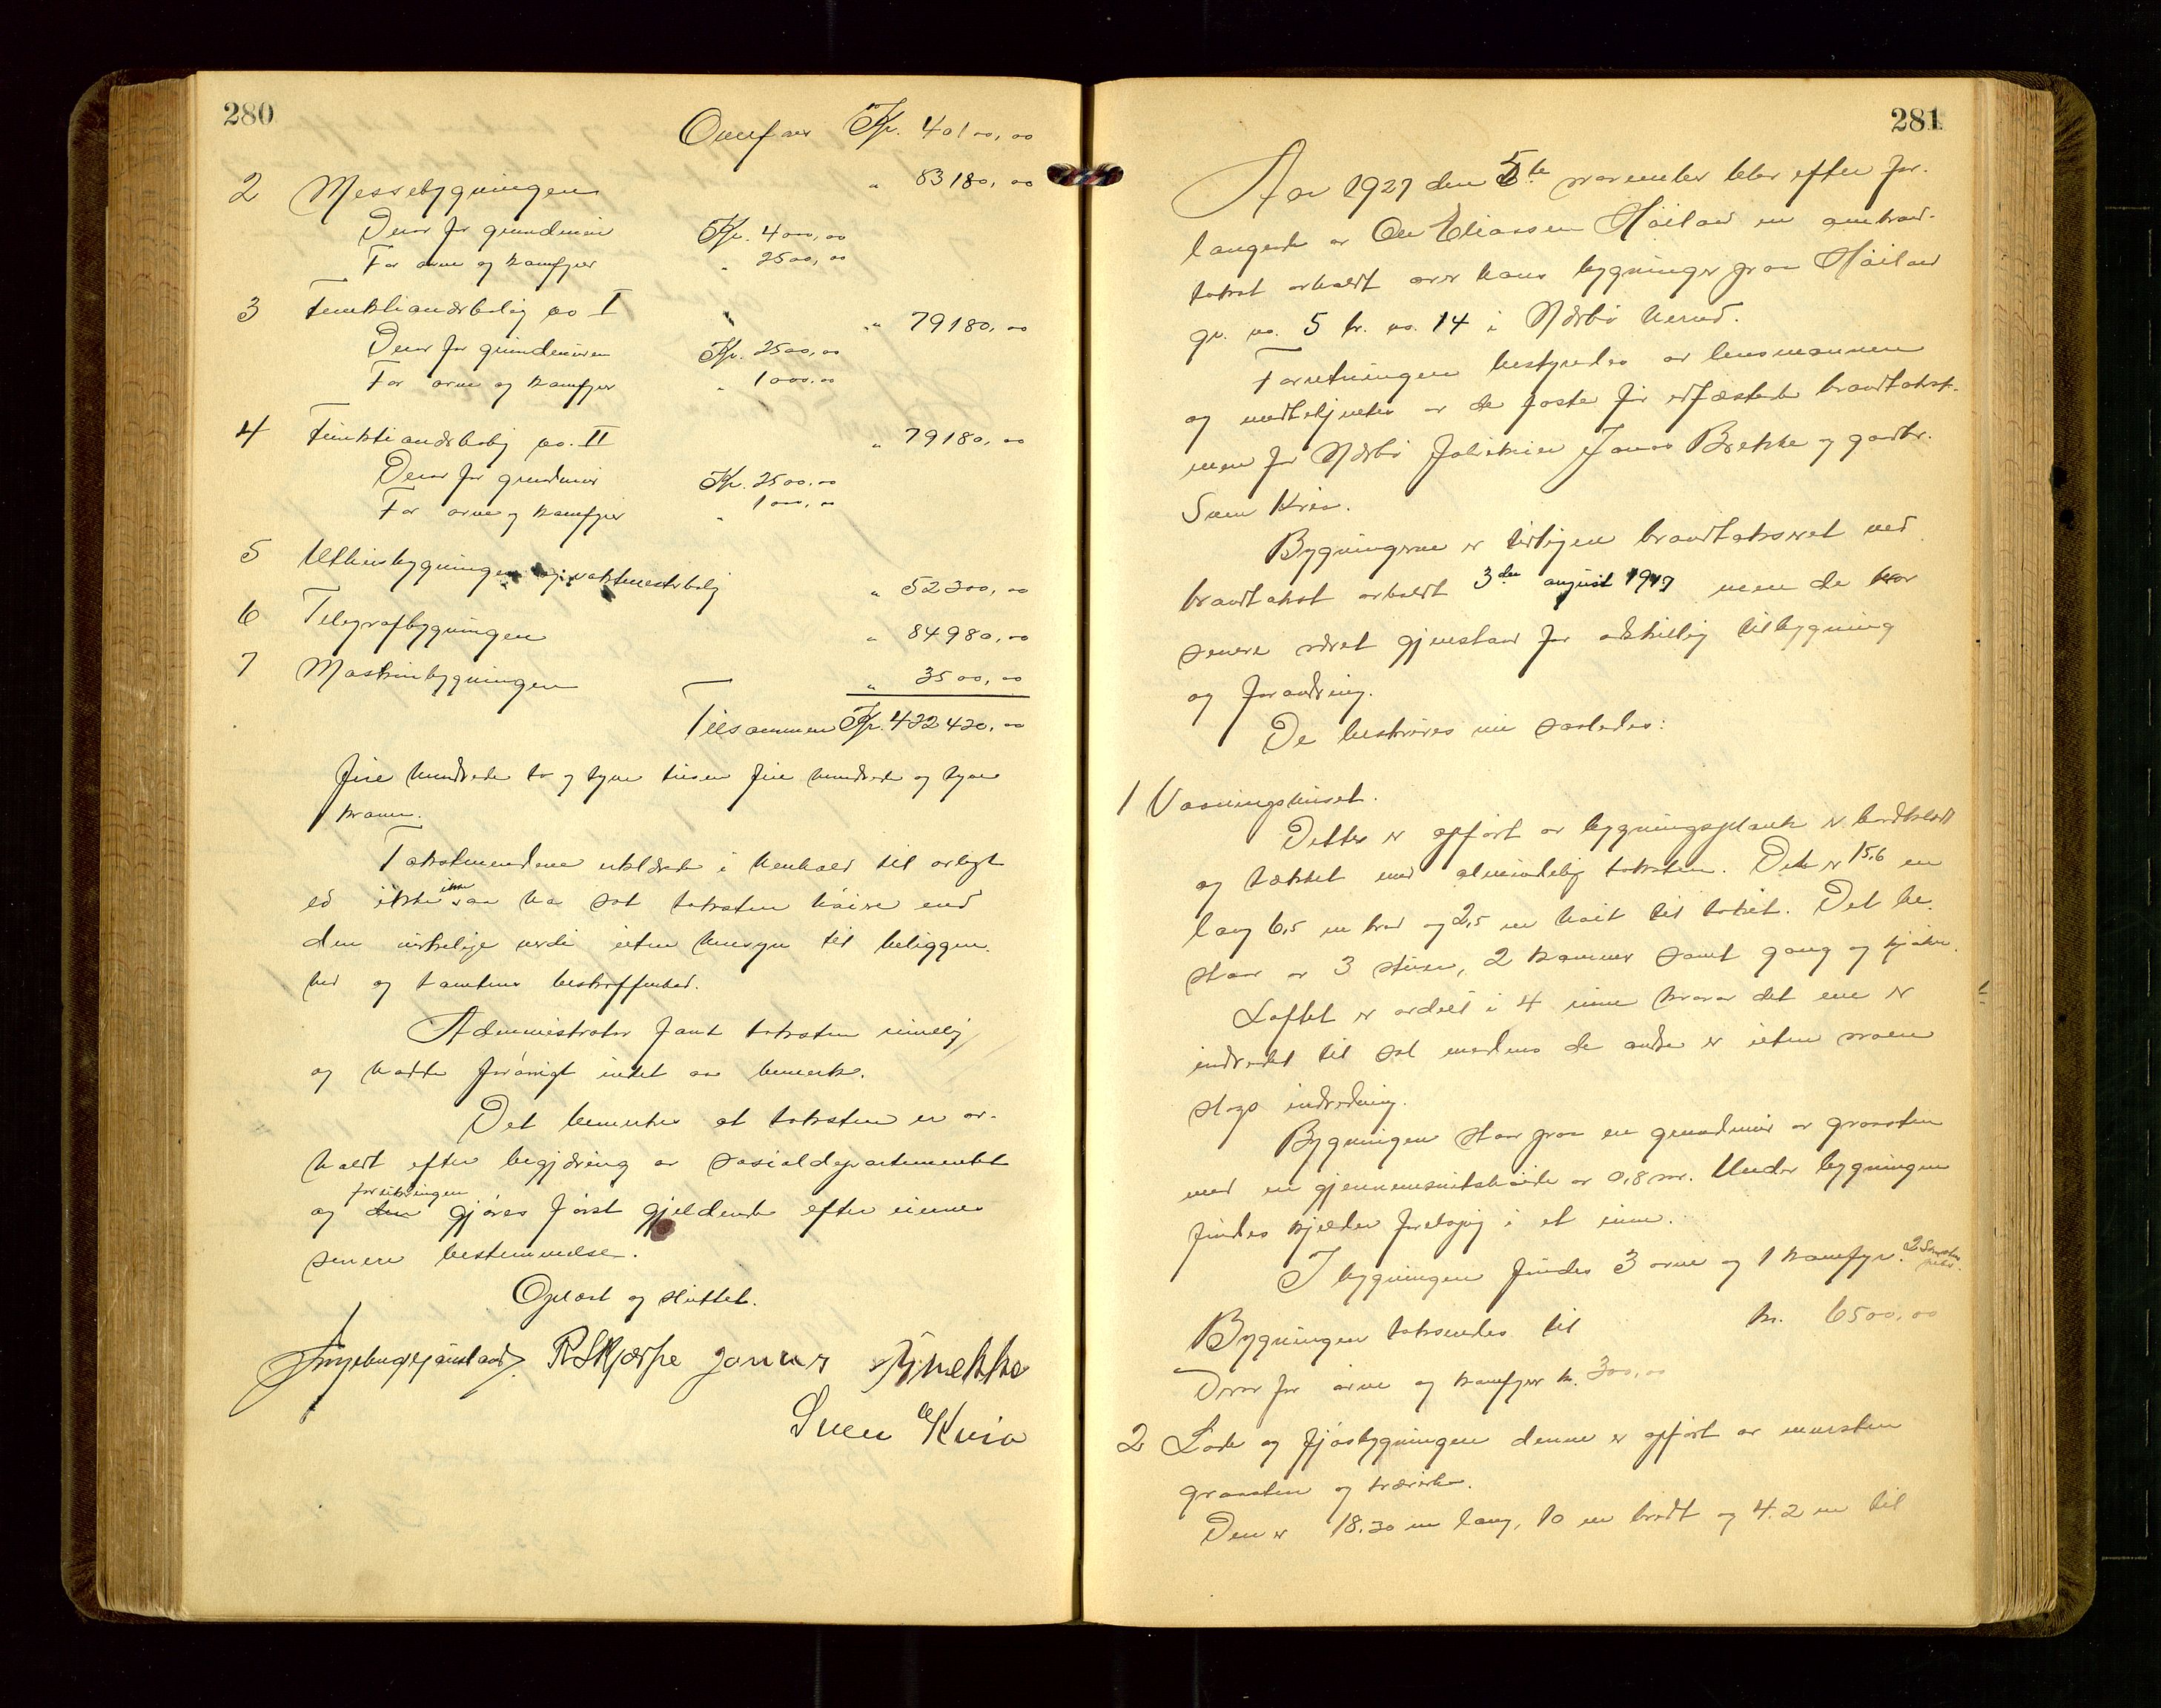 280
Overført Kr. 40100,00
2 Messebygningen " 83180,00
Derav for grundmur Kr. 4000,00
For ovne og komfyrer " 2500,00
3 Funktionærbolig no I " 79180,00
Derav for grundmuren Kr. 2500,00
For ovne og komfyrer " 1000,00
4 Funktionærbolig no. II " 79180,00
Derav for grundmur Kr. 2500,00
For ovne og komfyrer " 1000,00
5 Uthusbygningen og vaktmesterbolig " 52300,00
6 Telegrafbygningen " 84980,00
7 Maskinbygningen " 3500,00
Tilsammen Kr. 422420,00
fire hundrede to og tyve tusen fire hundrede og tyve
kroner.
Takstmændene erklærte i henhold til avlagt
ed ikke aa ha sat taksten høiere end
den virkelige verdi uten hensyn til beliggen-
het og tomtens beskaffenhet.
Administrator fant taksten rimelig
og hadde forøvrigt intet aa bemerke.
Det bemerkes at taksten er av-
holdt efter begjæring av Sosialdepartementet
og forsikringen gjøres først gjeldende efter
senere bestemmelse.
Oplæst og sluttet.
R Skjærpe Jonas Brekke
Sven Kvia
281
Aar 1927 den 5te november blev efter for-
langende av Ole Eliassen Høiland en ombrand-
takst avholdt over hans bygninger paa Høiland
gr. no. 5 br. no. 14 i Nærbø herred.
Forretningen bestyredes av lensmannen
og medbetjentes av de faste før edfæstede brandtakst-
menn for Nærbø fabrikeier Jonas Brekke og gaardbr.
Sven Kvia.
Bygningerne er tidligere brandtakseret ved
brandtakst avholdt 3die august 1917 men de har
senere været gjenstand for adskillig tilbygning
og forandring.
De beskrives nu saaledes:
1 Vaaningshuset.
Dette er opført av bygningsplank er bordklædt
og tækket med almindelig taksten. Det er 15,6 m
lang 6,5 m bred og 2,5 m høit til taket. Det be-
staar av 3 stuer, 2 kammer samt gang og kjøken.
Loftet er avdelt i 4 rum hvorav det ene er
indredet til sal medens de andre er uten noen
slags indredning.
Bygningen staar paa en grundmur av graasten
med en gjennemsnitshøide av 0,8 m. Under bygningen
findes kjelder forelagtig i et rum.
I bygningen findes 3 ovne og 1 komfyr. 2 Skorstens
piber.
Bygningen taksendes til kr. 6500,00
Derav for ovne og komfyrer kr. 300,00
2 Lade og fjøsbygningen denne er opført av mursten
graasten og træverk.
Den er 18.30 m lang, 10 m bredt og 4.2 m til